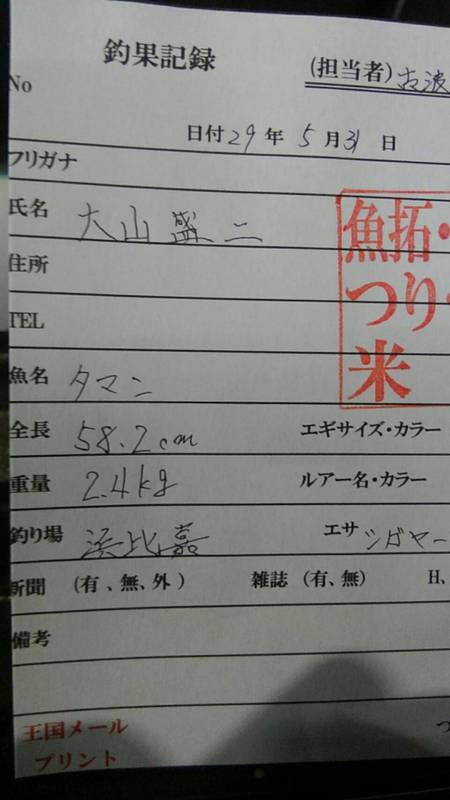 釣果記録
(担当者) 古波
No
日付 29 年 5 月 31 日
フリガナ
氏名 大山 盛二
住所
魚拓・
つり
米
TEL
魚名 タマン
全長 58.2cm エギサイズ・カラー
重量 2.4kg ルアー名・カラー
釣り場 浜比嘉 エサ シガヤー
新聞 (有、無、外) 雑誌 (有、無) H、
備考
王国メール つ
プリント